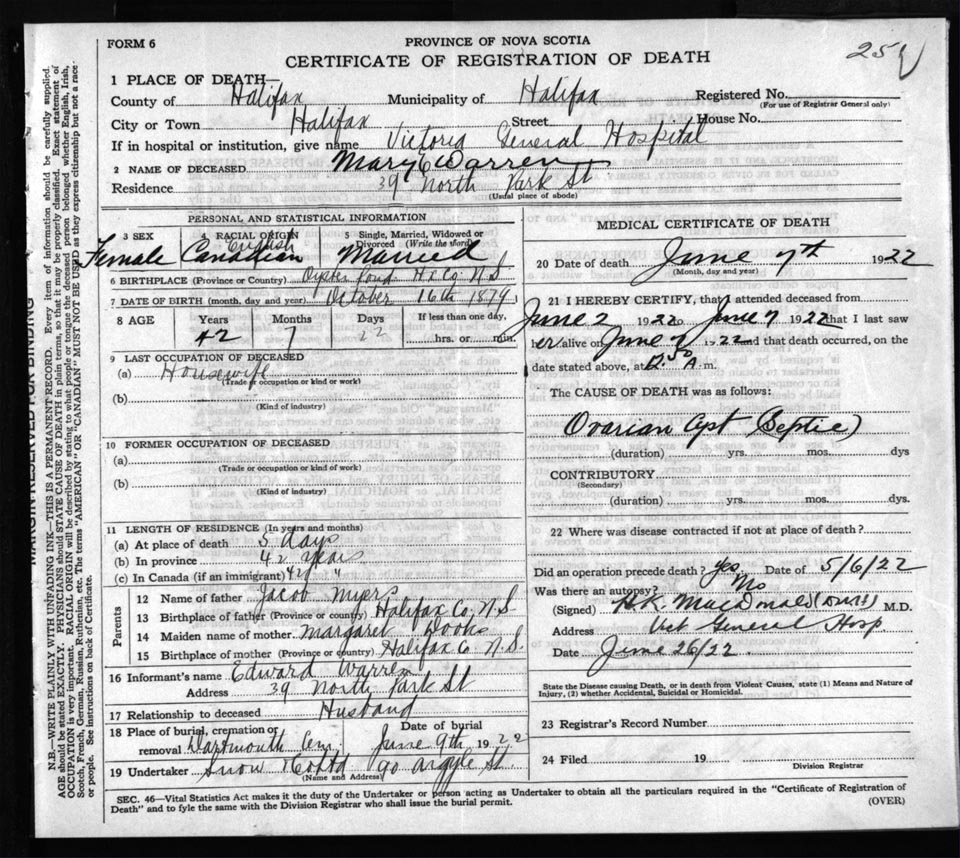 FORM 6
PROVINCE OF NOVA SCOTIA
CERTIFICATE OF REGISTRATION OF DEATH
25
1 PLACE OF DEATH—
County of Halifax Municipality of Halifax Registered No.
(For use of Registrar General only)
City or Town Halifax Street House No.
If in hospital or institution, give name Victoria General Hospital
2 NAME OF DECEASED Mary E Warren
Residence 39 North Park St
(Usual place of abode)
PERSONAL AND STATISTICAL INFORMATION
3 SEX 4 RACIAL ORIGIN 5 Single, Married, Widowed or Divorced (Write the word)
English
Female Canadian Married
6 BIRTHPLACE (Province or Country) Oyster Pond Hx Co N.S
7 DATE OF BIRTH (month, day and year) October 16th 1879
8 AGE Years Months Days If less than one day,
42 7 22 hrs. or min.
9 LAST OCCUPATION OF DECEASED
(a) Housewife
(Trade or occupation or kind or work)
(b)
(Kind of industry)
10 FORMER OCCUPATION OF DECEASED
(a)
(Trade or occupation or kind or work)
(b)
(Kind of industry)
11 LENGTH OF RESIDENCE (In years and months)
(a) At place of death 5 days
(b) In province 42 years
(c) In Canada (if an immigrant) 42 "
Parents
12 Name of father Jacob Myers
13 Birthplace of father (Province or country) Halifax Co. N.S
14 Maiden name of mother Margaret
15 Birthplace of mother (Province or country) Halifax Co N.S.
16 Informant's name Edward Warren
Address 39 North Park St
17 Relationship to deceased Husband
18 Place of burial, cremation or removal Dartmouth Cem Date of burial June 9th 1922
19 Undertaker Snow & Co Ltd 90 Argyle St.
(Name and Address)
MEDICAL CERTIFICATE OF DEATH
20 Date of death June 7th 1922
(Month, day and year)
21 I HEREBY CERTIFY, that I attended deceased from
June 2 1922 to June 7 1922 that I last saw
her alive on June 7 1922 and that death occurred, on the
date stated above, at 12.50 A. m.
The CAUSE OF DEATH was as follows:
Ovarian Cyst (Septic)
(duration) yrs. mos. dys
CONTRIBUTORY
(Secondary)
(duration) yrs. mos. dys.
22 Where was disease contracted if not at place of death?
Did an operation precede death? Yes Date of 5/6/22
Was there an autopsy? No
(Signed) H.K. MacDonald M.D.
Address Vict General Hosp
Date June 26/22
State the Disease causing Death, or in death from Violent Causes, state (1) Means and Nature of
Injury, (2) whether Accidental, Suicidal or Homicidal.
23 Registrar's Record Number
24 Filed 19
Division Registrar
SEC. 46—Vital Statistics Act makes it the duty of the Undertaker or person acting as Undertaker to obtain all the particulars required in the "Certificate of Registration of
Death" and to fyle the same with the Division Registrar who shall issue the burial permit.
(OVER)
MARGIN RESERVED FOR BINDING
N.B.—WRITE PLAINLY WITH UNFADING INK—THIS IS A PERMANENT RECORD. Every item of information should be carefully supplied.
AGE should be stated EXACTLY. PHYSICIANS should STATE CAUSE OF DEATH in plain terms, so that it may be properly classified. Exact statement of
OCCUPATION is very important. RACIAL ORIGIN will be described by stating to what people or tongue the deceased person belonged whether English, Irish,
Scotch, French, German, Russian, Ruthenian, etc. The terms "AMERICAN" OR "CANADIAN" MUST NOT BE USED as they express citizenship but not a race
or people. See instructions on back of Certificate.